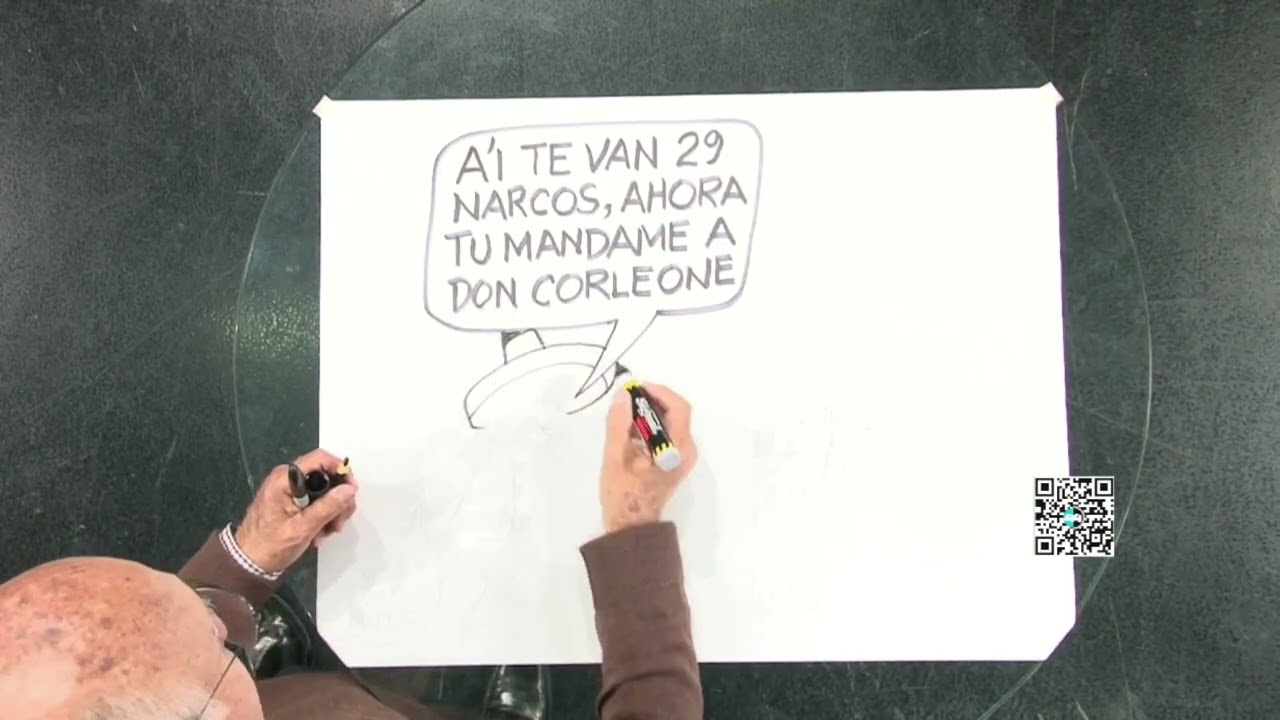 A'I TE VAN 29
NARCOS, AHORA
TU MANDAME A
DON CORLEONE